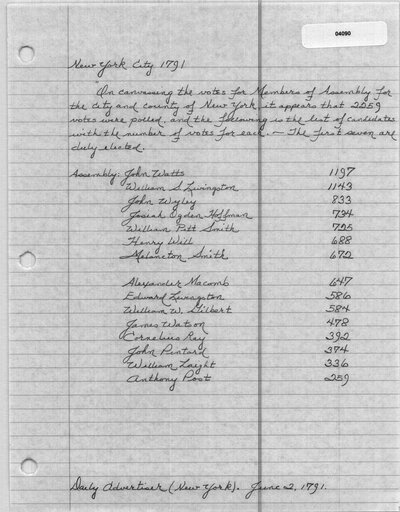 04090
New York City 1791
"On canvassing the votes for Members of Assembly for
the city and county of New York it appears that 2059
votes were polled, and the following is the list of candidates
with the number of votes for each. — The first seven are
duly elected.
Assembly: John Watts 1197
William S Livingston 1143
John Wyley 833
Josiah Ogden Hoffman 734
William Pitt Smith 725
Henry Will 688
Melancton Smith 672
Alexander Macomb 647
Edward Livingston 586
William W. Gilbert 584
James Watson 478
Cornelius Ray 392
John Pintard 374
William Laight 336
Anthony Post 259
Daily Advertiser (New York). June 2, 1791.